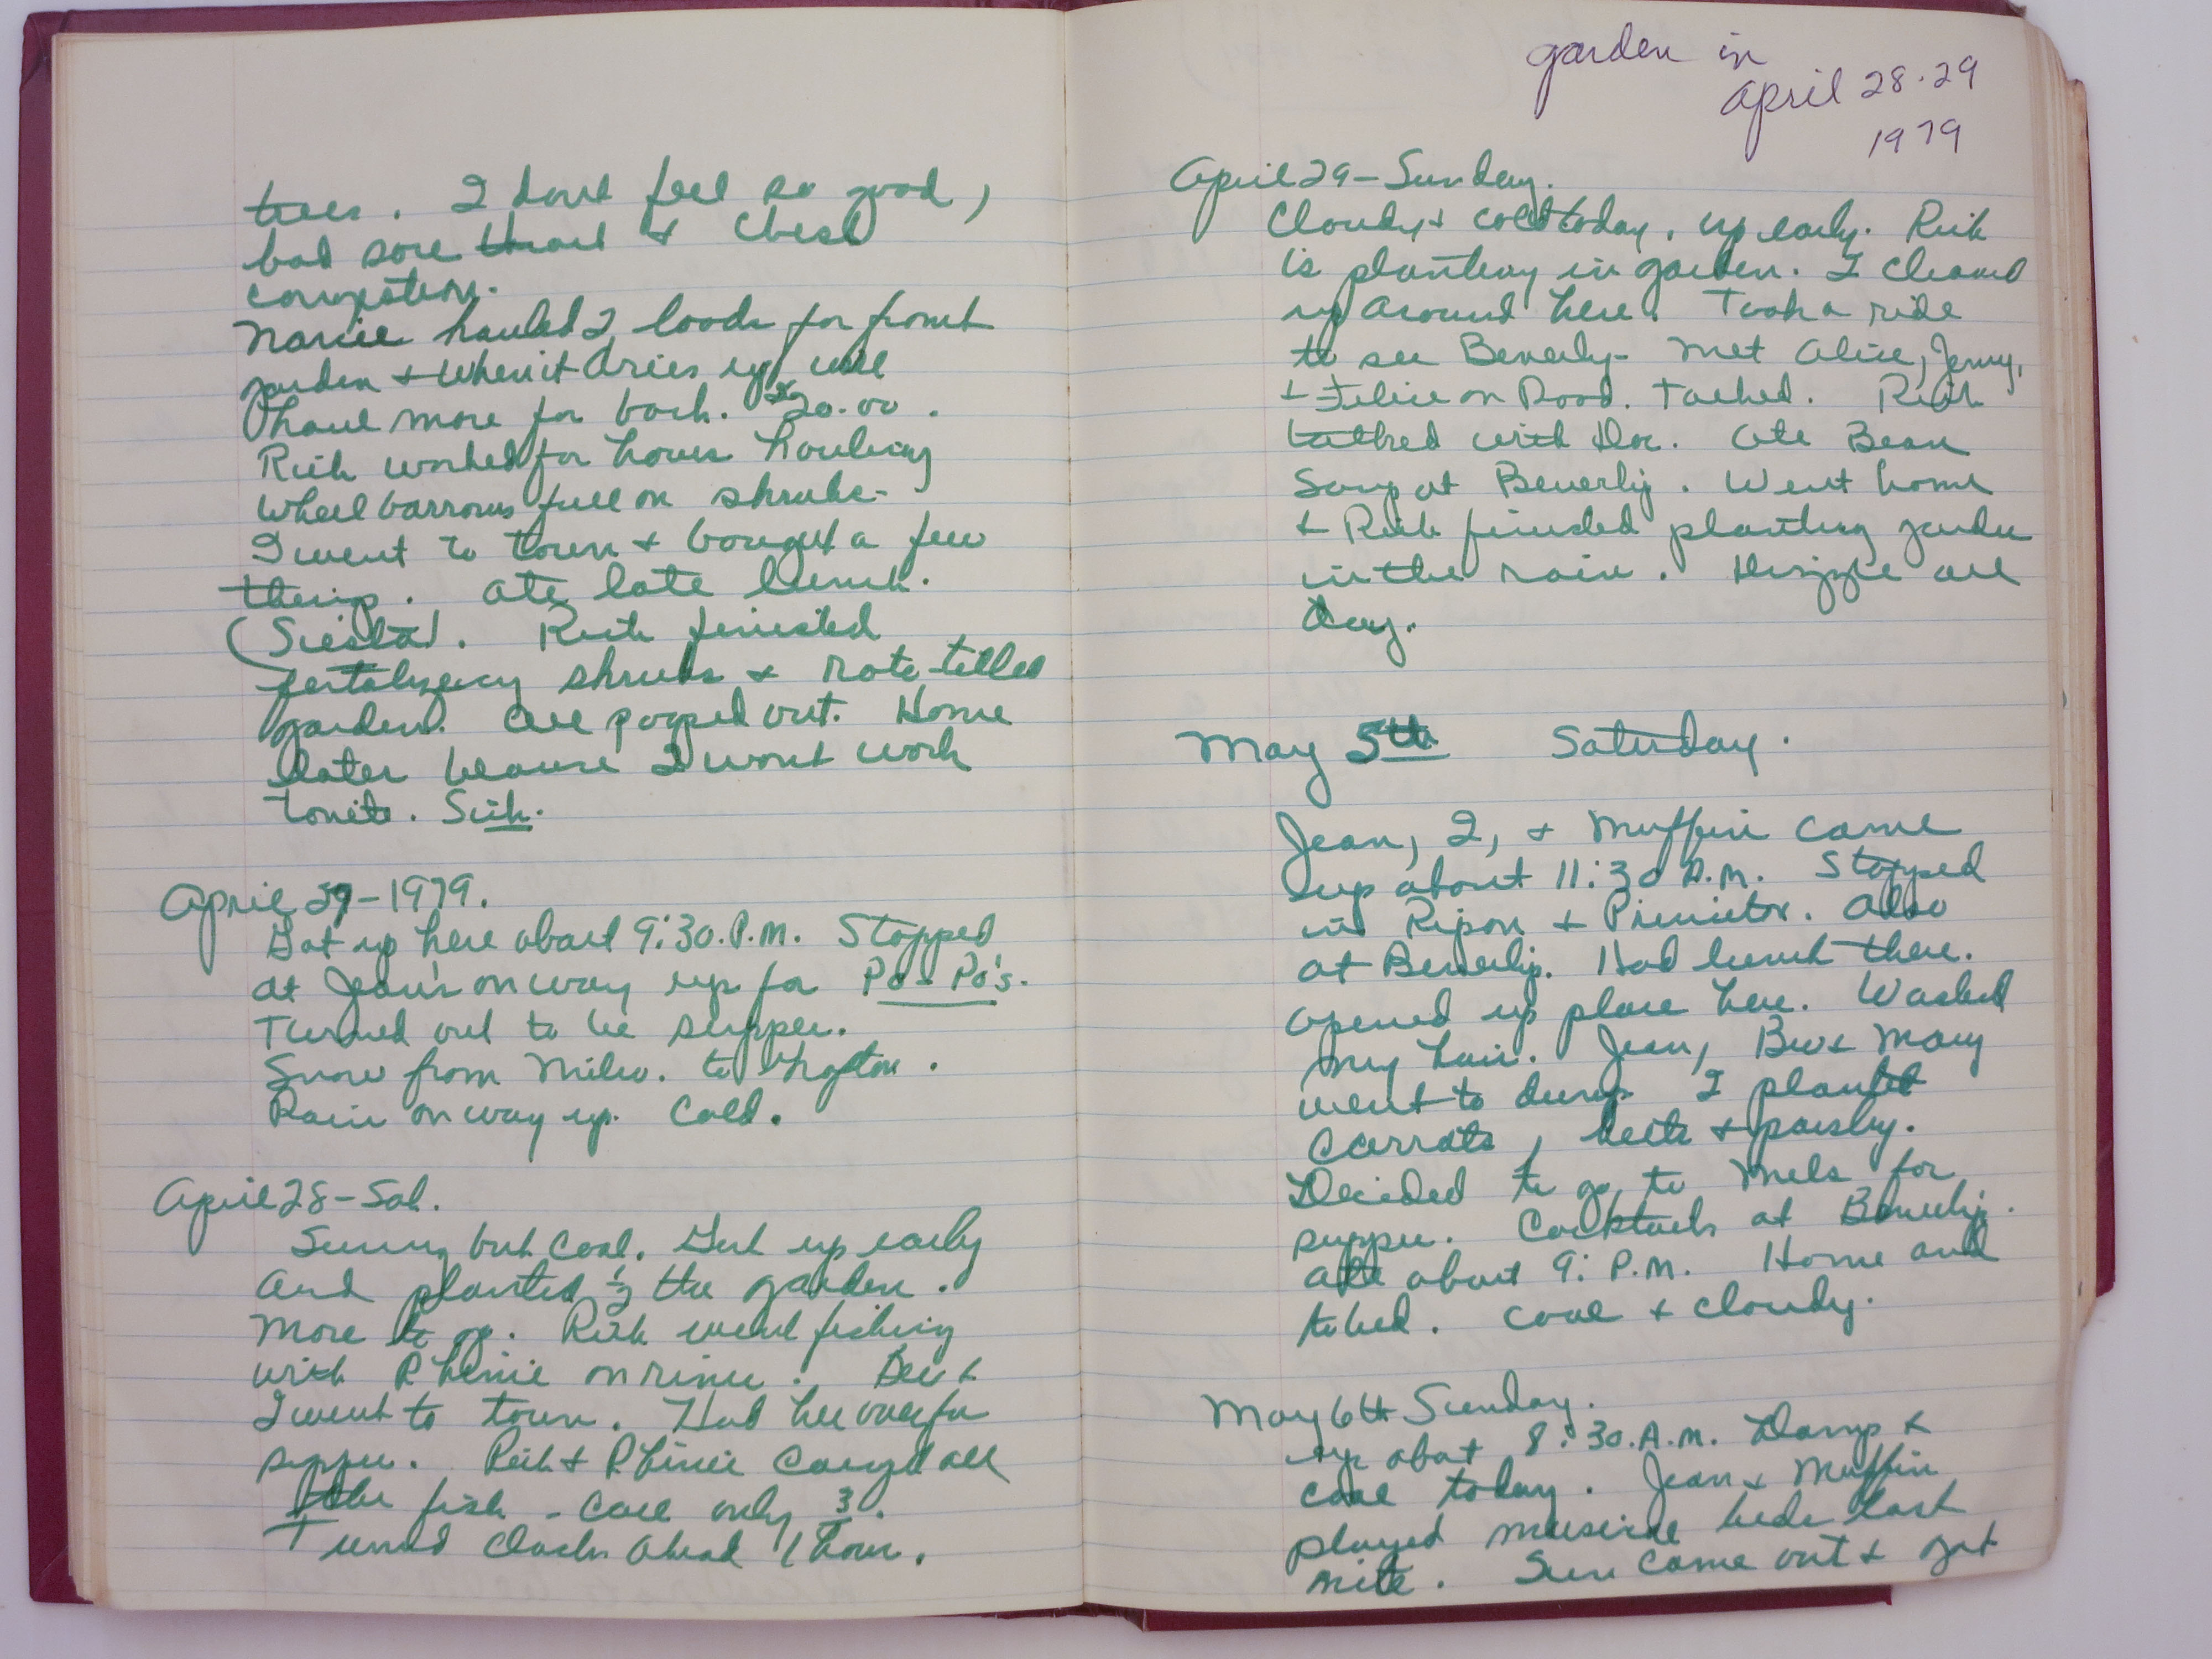 trees. I dont feel so good,
bad sore throat & Chest
congestion.
hauled 2 loads for front
garden & when it dries up will
haul more for back. $20.00.
Rich worked for hours hauling
Wheel barrows full on shrubs-
I went to town & bought a few
things. Ate late lunch.
(Siesta). Rich finished
fertalizeing shrubs & roto-tilled
garden. All pooped out. Home
later because I wont work
tonite. Sick.
April 27-1979.
Got up here about 9:30.P.M. Stopped
at Jean's on way up for Po-Po's.
Turned out to be supper.
Snow from Milw. to
Rain on way up. Cold.
April 28-Sat.
Sunny but cool. Got up early
and planted ½ the garden.
More to go. Rich went fishing
with Rheinie on river. Bev &
I went to town. Had her over for
supper. Rich & Rheinie caught all
the fish - all only 3.
Turned Clocks Ahead 1 hour.
garden in
April 28-29
1979
April 29-Sunday.
Cloudy & cold today. up early. Rich
is planting in garden. I cleaned
up around here. Took a ride
to see Beverly- Met Alice, Jenny,
& Felice on Road. Talked. Rich
talked with Doc. Ate Bean
Soup at Beverly. Went home
& Rich finished planting garden
in the rain. Drizzle all
day.
May 5th Saturday.
Jean, I, & Muffin came
up about 11:30 A.M. Stopped
in Ripon & Princeton. Also
at Beverlys. Had lunch there.
Opened up place here. Washed
my hair. Jean, Bev & Mary
went to dump I planted
Carrots, beets & parsley.
Decided to go to Mels for
supper. Cocktails at Beverlys.
Ate about 9: P.M. Home and
to bed. Cool & cloudy.
May 6th Sunday.
up abot 8:30.A.M. Damp &
cool today. Jean & Muffin
played musical beds last
nite. Sun came out & got